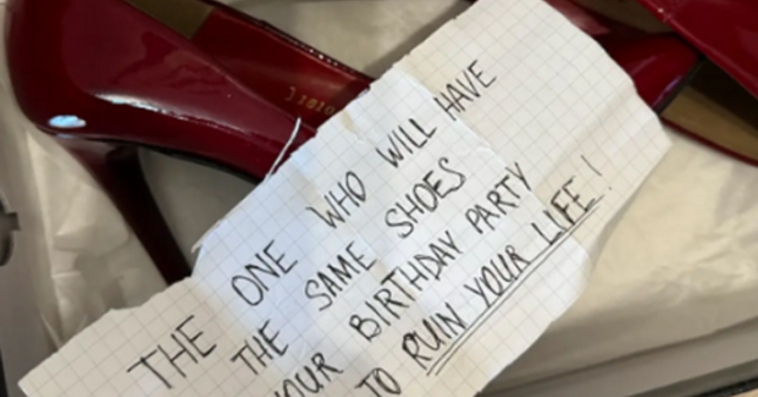 THE ONE WHO WILL HAVE
THE SAME SHOES
YOUR BIRTHDAY PARTY
TO RUIN YOUR LIFE!